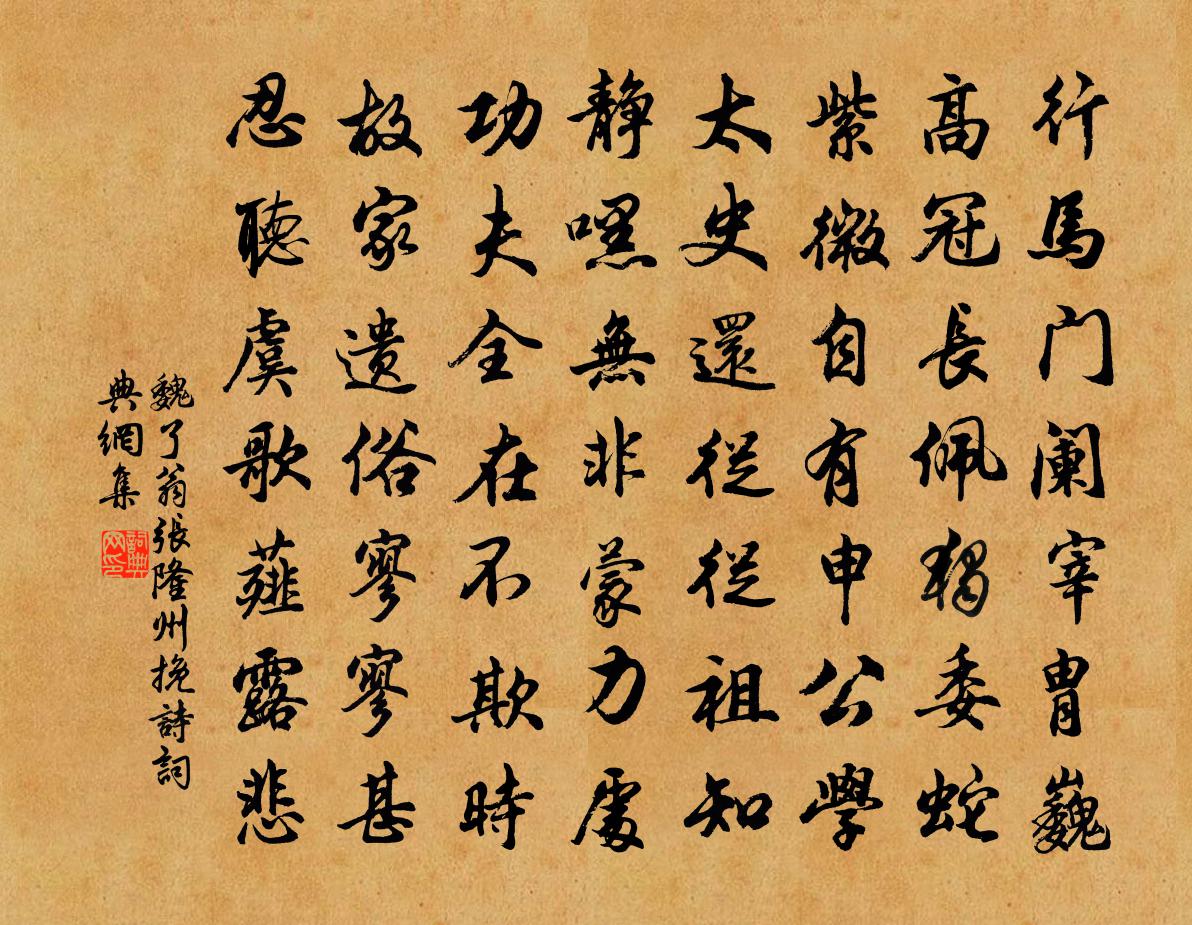 行馬门阑宰胄巍
高冠長佩猲委蛇
紫微自有申公學
太史還從從祖知
静嘿無非蒙力處
功夫全在不欺時
故家遗俗寥寥甚
忍聽虞歌薤露悲
魏了翁張隆州挽詩詞
典網集
詞典网印